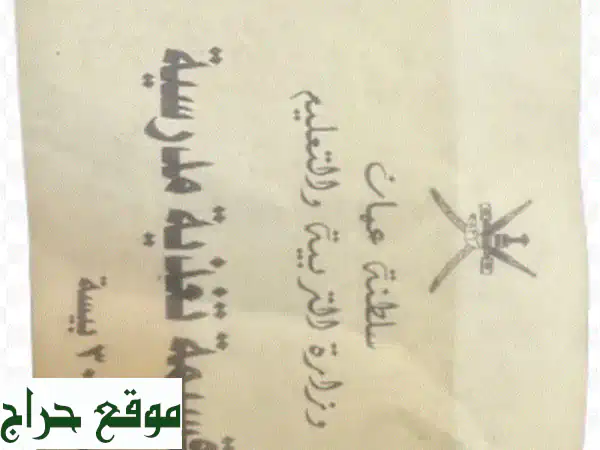 سلطنة عمان
وزارة التربية والتعليم
قسيمة تغذية مدرسية
٣٠ بيسة
موقع حراج